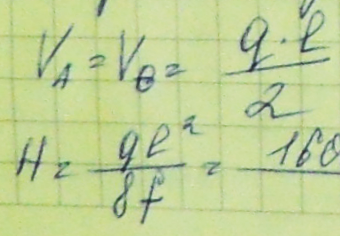 V_A = V_B = q·l / 2
H = ql² / 8f = 160